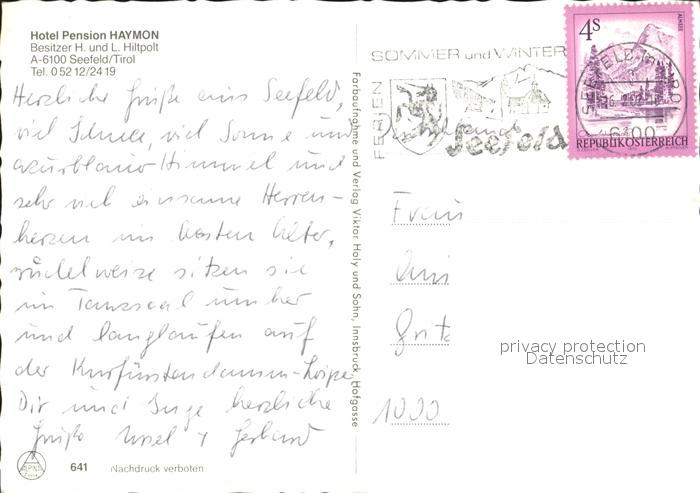 Hotel Pension HAYMON
Besitzer H. und L. Hiltpolt
A-6100 Seefeld/Tirol
Tel. 0 52 12/24 19
Herzliche Grüße aus Seefeld,
viel Schnee, viel Sonne und
azurblauer Himmel und
sehr viel einsame Herren-
herzen im besten Alter,
rudelweise sitzen sie
im Tanzsaal umher
und langlaufen auf
der Kurfürstendamm-Loipe.
Dir und Inge herzliche
Grüße Ursel + Gerhard
641 Nachdruck verboten
Farbaufnahme und Verlag Viktor Holy und Sohn, Innsbruck, Hofgasse
SOMMER und WINTER
FERIEN
Seefeld
4S
ALMSEE
6100
REPUBLIK ÖSTERREICH
Deutschland
Frau
1000
privacy protection
Datenschutz